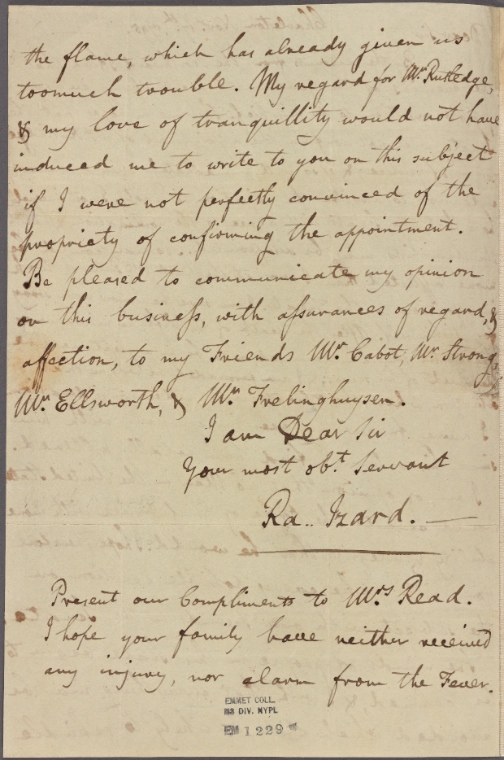 the flame, which has already given us
toomuch trouble. My regard for Mr. Rutledge,
& my love of tranquillity would not have
induced me to write to you on this subject
if I were not perfectly convinced of the
propriety of confirming the appointment.
Be pleased to communicate my opinion
on this business, with assurances of regard, &
affection, to my Friends Mr. Cabot, Mr. Strong
Mr. Ellsworth, & Mr. Frelinghuysen.
I am Dear Sir
Your most obt. Servant
Ra.. Izard.
Present our Compliments to Mrs. Read.
I hope your family have neither received
any injury, nor alarm from the Fever.
EMMET COLL.
MS DIV. NYPL
EM 1229